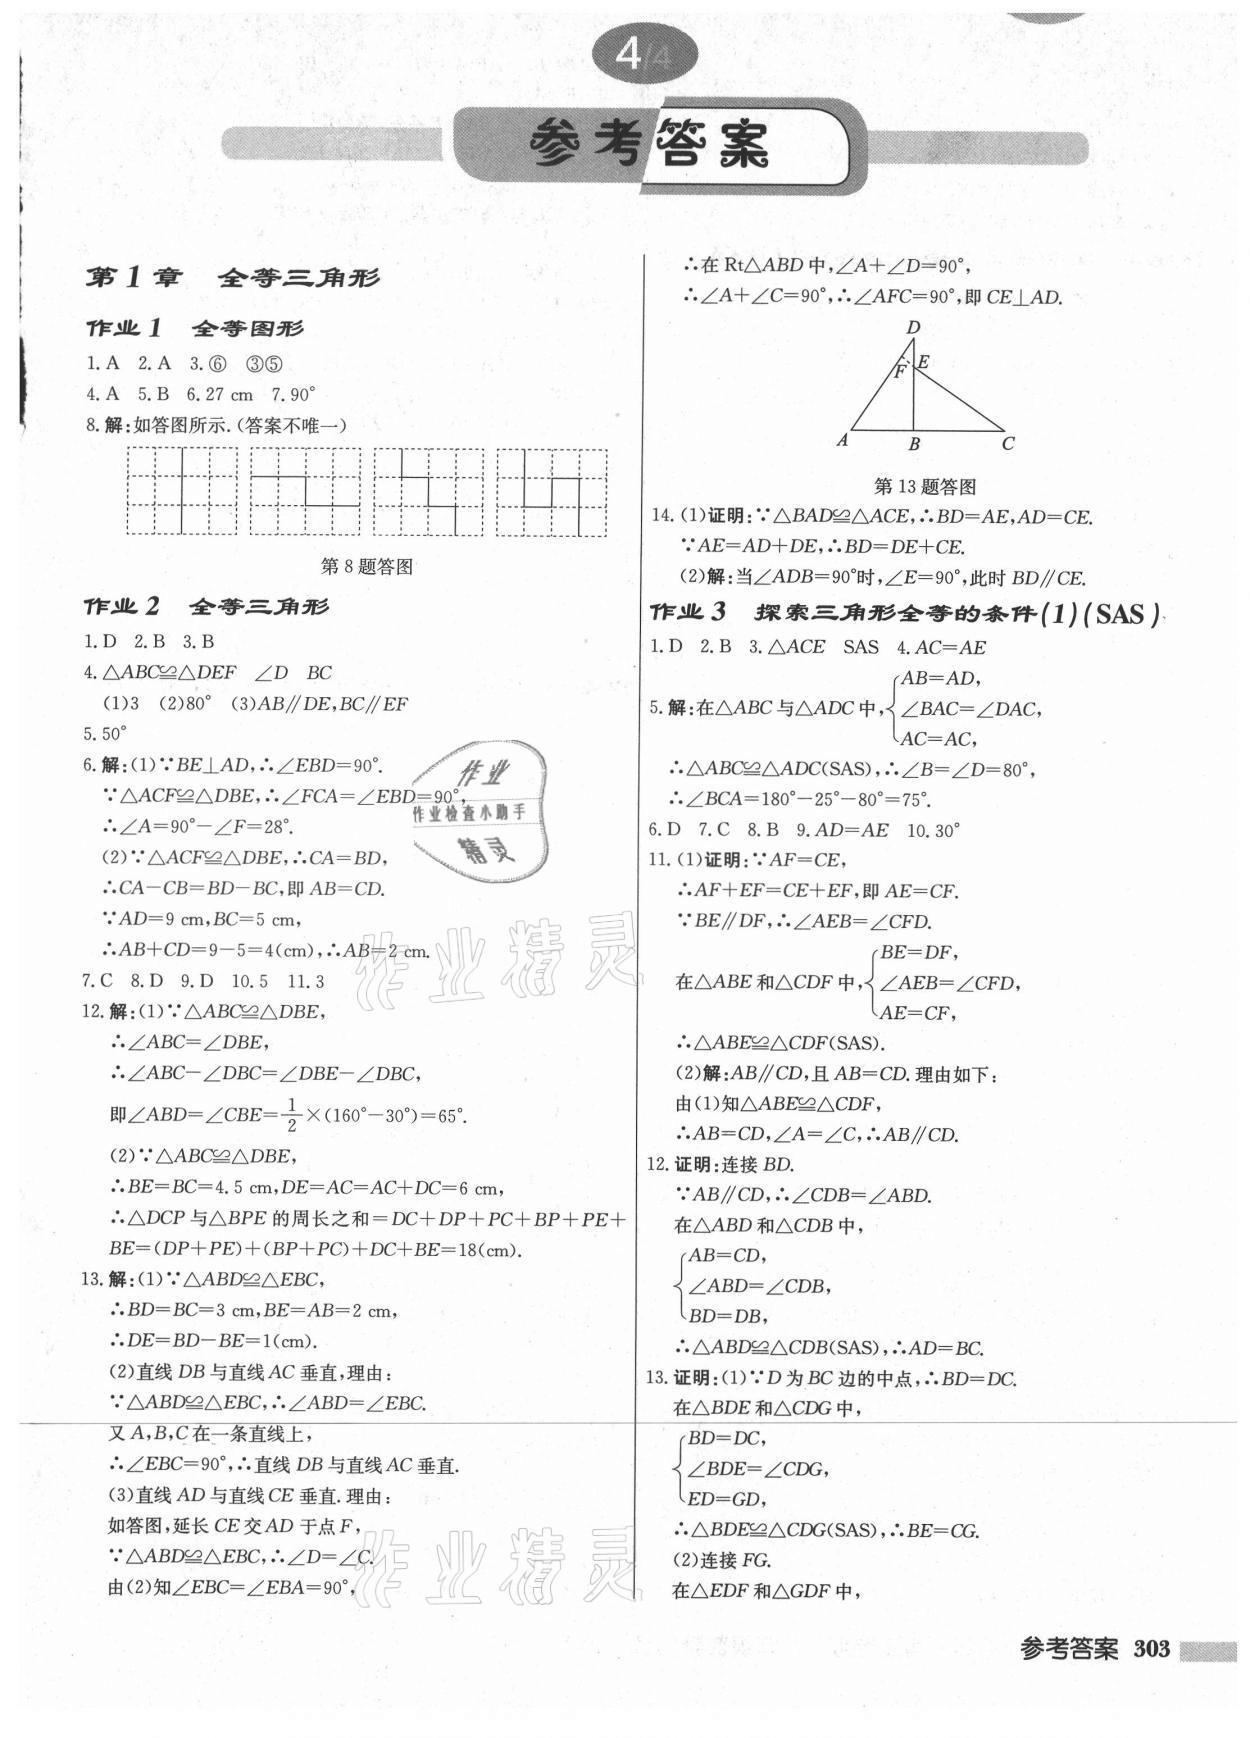 4/4
参考答案
第1章 全等三角形
作业1 全等图形
1. A 2. A 3. ⑥ ③⑤
4. A 5. B 6. 27 cm 7. 90°
8. 解:如答图所示.(答案不唯一)
第8题答图
作业2 全等三角形
1. D 2. B 3. B
4. △ABC≌△DEF ∠D BC
(1)3 (2)80° (3)AB∥DE,BC∥EF
5. 50°
6. 解:(1)∵BE⊥AD,∴∠EBD=90°.
∵△ACF≌△DBE,∴∠FCA=∠EBD=90°,
∴∠A=90°-∠F=28°.
(2)∵△ACF≌△DBE,∴CA=BD,
∴CA-CB=BD-BC,即 AB=CD.
∵AD=9 cm,BC=5 cm,
∴AB+CD=9-5=4(cm),∴AB=2 cm.
7. C 8. D 9. D 10. 5 11. 3
12. 解:(1)∵△ABC≌△DBE,
∴∠ABC=∠DBE,
∴∠ABC-∠DBC=∠DBE-∠DBC,
即∠ABD=∠CBE=1/2×(160°-30°)=65°.
(2)∵△ABC≌△DBE,
∴BE=BC=4.5 cm,DE=AC=AC+DC=6 cm,
∴△DCP与△BPE的周长之和=DC+DP+PC+BP+PE+
BE=(DP+PE)+(BP+PC)+DC+BE=18(cm).
13. 解:(1)∵△ABD≌△EBC,
∴BD=BC=3 cm,BE=AB=2 cm,
∴DE=BD-BE=1(cm).
(2)直线 DB 与直线 AC 垂直,理由:
∵△ABD≌△EBC,∴∠ABD=∠EBC.
又 A,B,C在一条直线上,
∴∠EBC=90°,∴直线 DB 与直线 AC 垂直.
(3)直线 AD 与直线 CE 垂直.理由:
如答图,延长 CE 交 AD 于点 F,
∵△ABD≌△EBC,∴∠D=∠C.
由(2)知∠EBC=∠EBA=90°,
∴在 Rt△ABD 中,∠A+∠D=90°,
∴∠A+∠C=90°,∴∠AFC=90°,即 CE⊥AD.
D
F E
A B C
第13题答图
14. (1)证明:∵△BAD≌△ACE,∴BD=AE,AD=CE.
∵AE=AD+DE,∴BD=DE+CE.
(2)解:当∠ADB=90°时,∠E=90°,此时 BD∥CE.
作业3 探索三角形全等的条件(1)(SAS)
1. D 2. B 3. △ACE SAS 4. AC=AE
AB=AD,
5. 解:在△ABC与△ADC中,∠BAC=∠DAC,
AC=AC,
∴△ABC≌△ADC(SAS),∴∠B=∠D=80°,
∴∠BCA=180°-25°-80°=75°.
6. D 7. C 8. B 9. AD=AE 10. 30°
11. (1)证明:∵AF=CE,
∴AF+EF=CE+EF,即 AE=CF.
∵BE∥DF,∴∠AEB=∠CFD.
BE=DF,
在△ABE和△CDF中,∠AEB=∠CFD,
AE=CF,
∴△ABE≌△CDF(SAS).
(2)解:AB∥CD,且 AB=CD.理由如下:
由(1)知△ABE≌△CDF,
∴AB=CD,∠A=∠C,∴AB∥CD.
12. 证明:连接 BD.
∵AB∥CD,∴∠CDB=∠ABD.
在△ABD和△CDB中,
AB=CD,
∠ABD=∠CDB,
BD=DB,
∴△ABD≌△CDB(SAS),∴AD=BC.
13. 证明:(1)∵D为BC边的中点,∴BD=DC.
在△BDE和△CDG中,
BD=DC,
∠BDE=∠CDG,
ED=GD,
∴△BDE≌△CDG(SAS),∴BE=CG.
(2)连接 FG.
在△EDF和△GDF中,
作业
作业检查小助手
精灵
作业精灵
作业精灵
参考答案 303